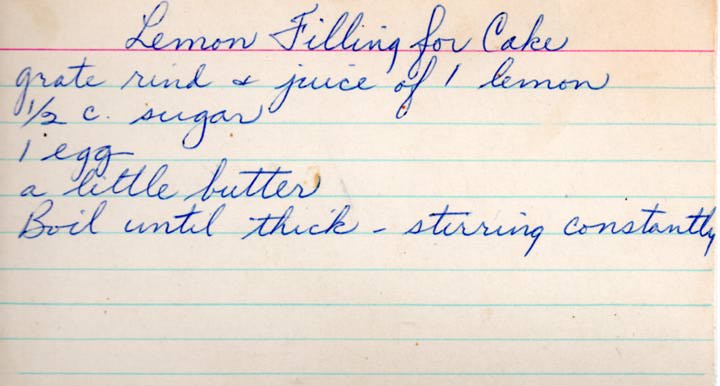 Lemon Filling for Cake
grate rind & juice of 1 lemon
1/2 c. sugar
1 egg
a little butter
Boil until thick - stirring constantly